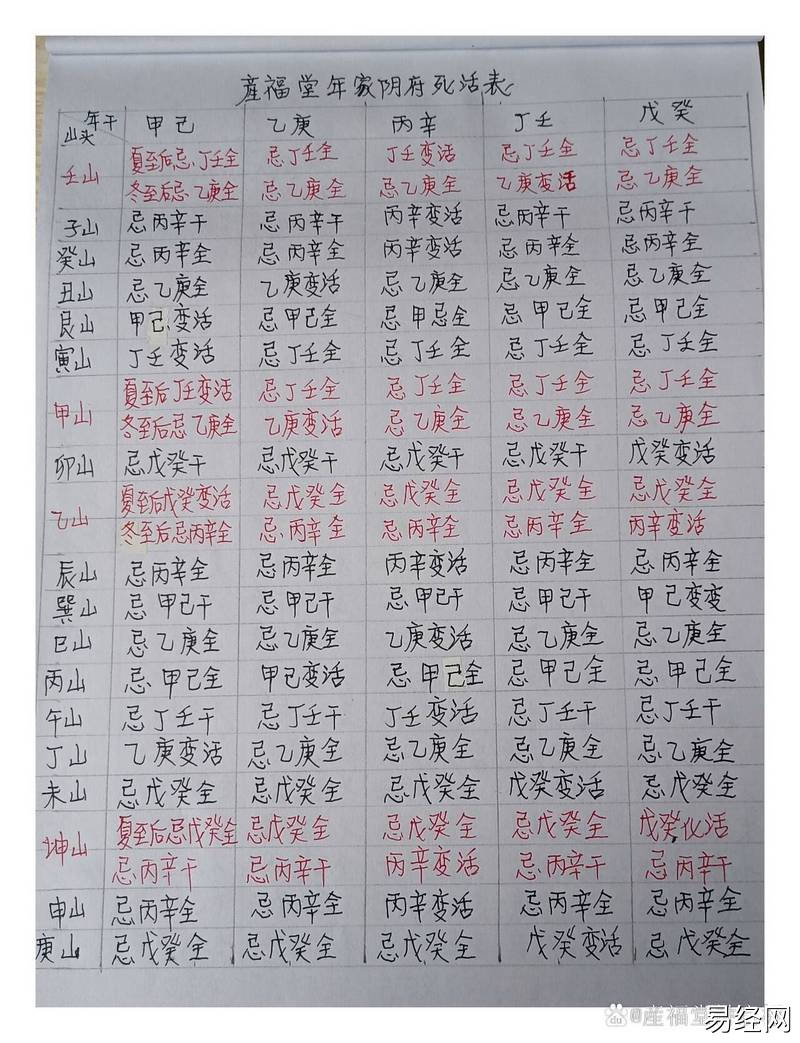 産福堂年家阴府死活表
年干 山头 甲己 乙庚 丙辛 丁壬 戊癸
壬山 夏至后忌丁壬全 忌丁壬全 丁壬变活 忌丁壬全 忌丁壬全
冬至后忌乙庚全 忌乙庚全 忌乙庚全 乙庚变活 忌乙庚全
子山 忌丙辛干 忌丙辛干 丙辛变活 忌丙辛干 忌丙辛干
癸山 忌丙辛全 忌丙辛全 丙辛变活 忌丙辛全 忌丙辛全
丑山 忌乙庚全 乙庚变活 忌乙庚全 忌乙庚全 忌乙庚全
艮山 甲己变活 忌甲己全 忌甲忌全 忌甲己全 忌甲己全
寅山 丁壬变活 忌丁壬全 忌丁壬全 忌丁壬全 忌丁壬全
甲山 夏至后丁壬变活 忌丁壬全 忌丁壬全 忌丁壬全 忌丁壬全
冬至后忌乙庚全 乙庚变活 忌乙庚全 忌乙庚全 忌乙庚全
卯山 忌戊癸干 忌戊癸干 忌戊癸干 忌戊癸干 戊癸变活
乙山 夏至后戊癸变活 忌戊癸全 忌戊癸全 忌戊癸全 忌戊癸全
冬至后忌丙辛全 忌丙辛全 忌丙辛全 忌丙辛全 丙辛变活
辰山 忌丙辛全 忌丙辛全 丙辛变活 忌丙辛全 忌丙辛全
巽山 忌甲己干 忌甲己干 忌甲己干 忌甲己干 甲己变变
巳山 忌乙庚全 忌乙庚全 乙庚变活 忌乙庚全 忌乙庚全
丙山 忌甲己全 甲己变活 忌甲己全 忌甲己全 忌甲己全
午山 忌丁壬干 忌丁壬干 丁壬变活 忌丁壬干 忌丁壬干
丁山 乙庚变活 忌乙庚全 忌乙庚全 忌乙庚全 忌乙庚全
未山 忌戊癸全 忌戊癸全 忌戊癸全 戊癸变活 忌戊癸全
坤山 夏至后忌戊癸全 忌戊癸全 忌戊癸全 忌戊癸全 戊癸化活
忌丙辛干 忌丙辛干 丙辛变活 忌丙辛干 忌丙辛干
申山 忌丙辛全 忌丙辛全 丙辛变活 忌丙辛全 忌丙辛全
庚山 忌戊癸全 忌戊癸全 忌戊癸全 戊癸变活 忌戊癸全
du @産福堂
易经网